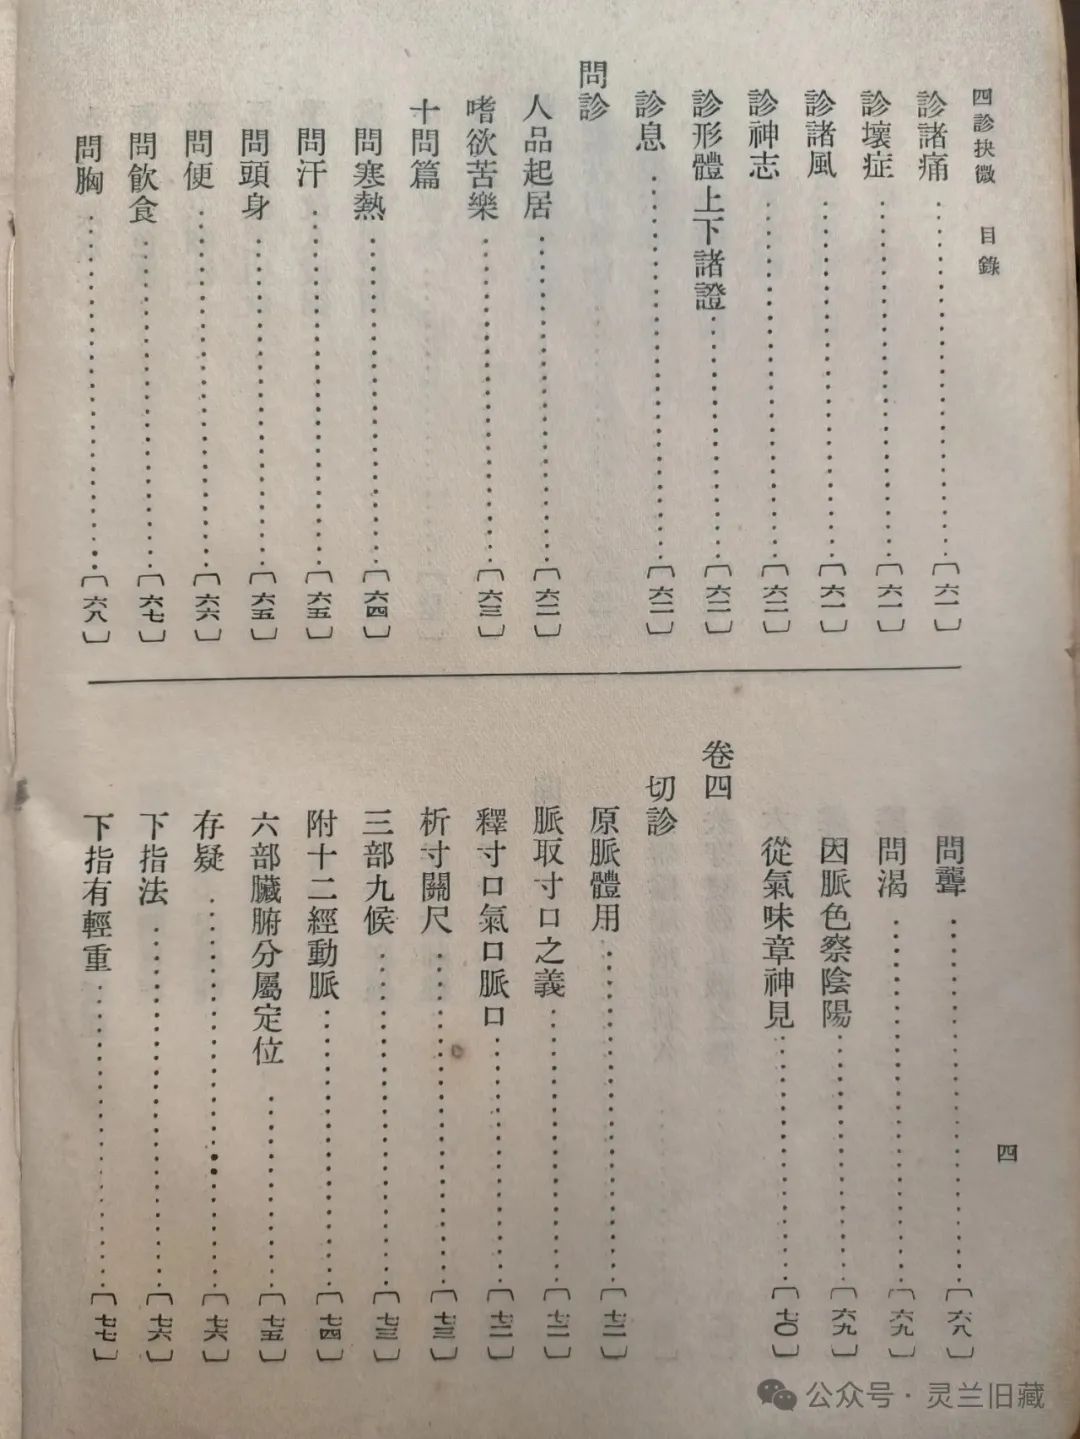 四診抉微　目錄
診諸痛……〔六一〕
診壞症……〔六一〕
診諸風……〔六一〕
診神志……〔六二〕
診形體上下諸證……〔六二〕
診息……〔六二〕
問診
人品起居……〔六二〕
嗜欲苦樂……〔六三〕
十問篇
問寒熱……〔六四〕
問汗……〔六五〕
問頭身……〔六五〕
問便……〔六六〕
問飲食……〔六七〕
問胸……〔六八〕
問聾……〔六八〕
問渴……〔六九〕
因脈色察陰陽……〔六九〕
從氣味章神見……〔七〇〕
卷四
切診
原脈體用……〔七二〕
脈取寸口之義……〔七二〕
釋寸口氣口脈口……〔七二〕
析寸關尺……〔七三〕
三部九候……〔七三〕
附十二經動脈……〔七四〕
六部臟腑分屬定位……〔七五〕
存疑……〔七六〕
下指法……〔七六〕
下指有輕重……〔七七〕
四
公众号·灵兰旧藏